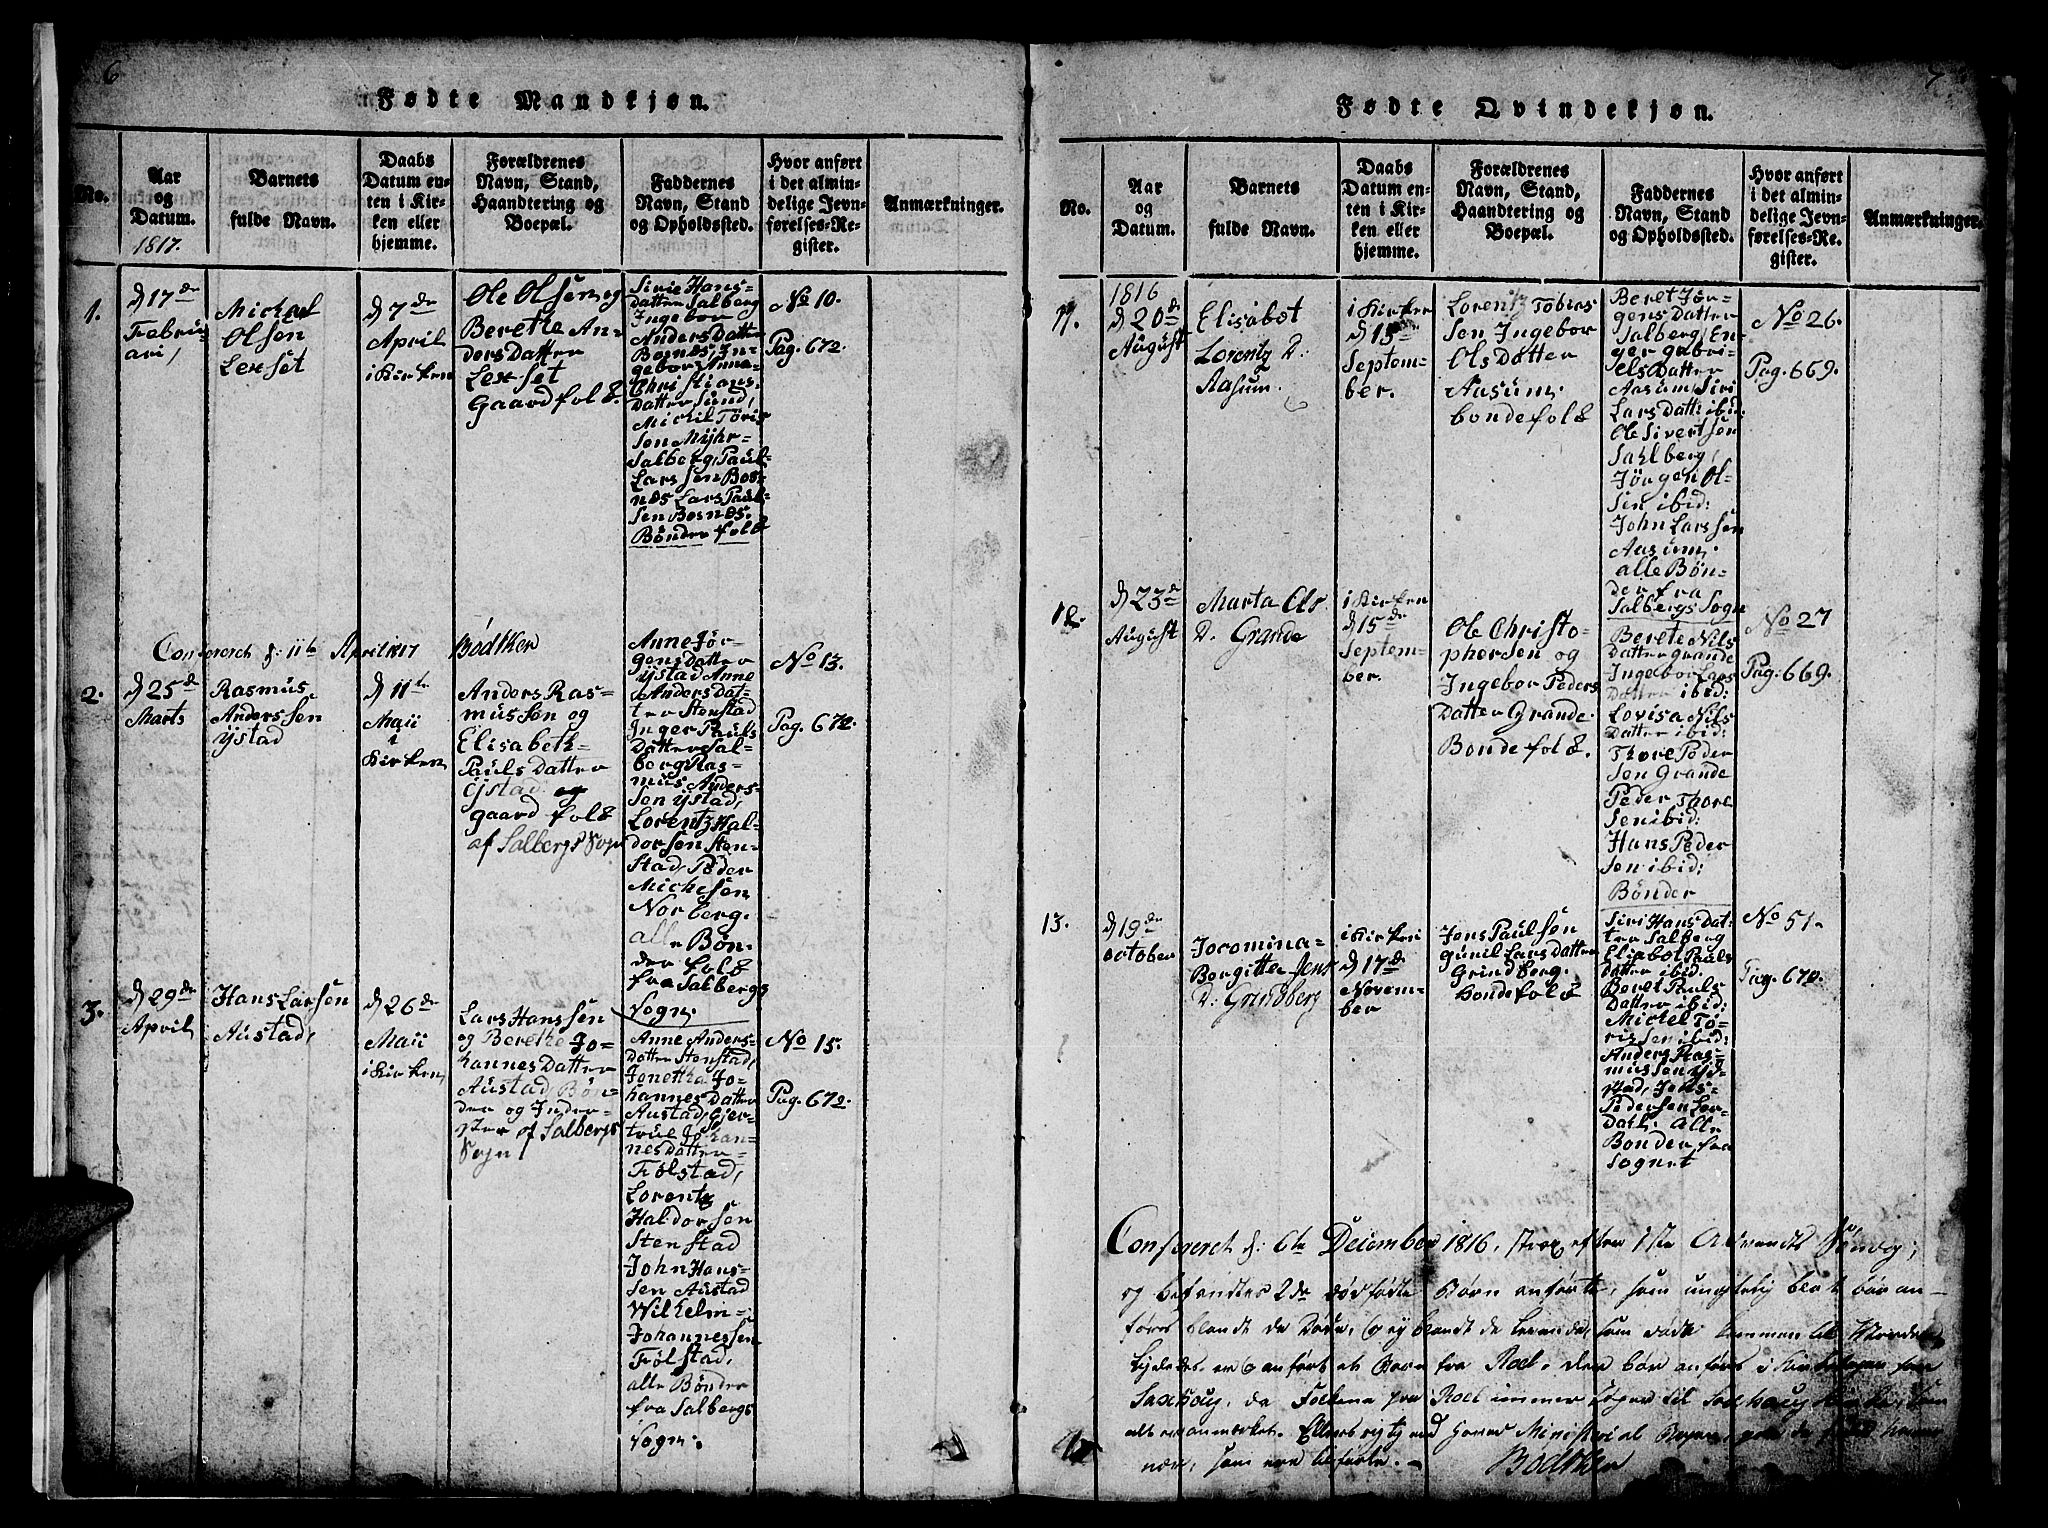 6
Fødte Mandkjøn.
No.
Aar
og
Datum.
1817.
Barnets
fulde Navn.
Daabs
Datum en-
ten i Kir-
ken eller
hjemme.
Forældrenes
Navn, Stand,
Haandtering og
Boepæl.
Faddernes
Navn, Stand
og Opholdssted.
Hvor anført
i det almin-
delige Jevn-
førelses-Re-
gister.
Anmærkninger.
1.
d 17de
Februa-
ari,
Michal
Olsen
Lexset
d 7de
April
i Kirken
Ole Olsen og
Berethe An-
ders Datter
Lexset
Gaardfolk.
Sirie Hans-
datter Salberg
Ingebor
Anders Datter
Bosnæs, In-
gebor Anne
Christians
Datter Sund,
Michil Töris
Sen Myhr-
Salberg, Paul-
Lars Sen Bos-
næs Lars Paul-
Sen Bosnæs.
Bönder folk
No 10.
Pag. 672.
Confereret d: 11te April 1817 Bödtker
2.
d 25de
Marts
Rasmus
Anderssen
ystad
d 11te
Maii
i
Kirken
Anders Ras-
mussen og
Elisabeth-
Pauls Datter
Ystad
gaard folk
af Salbergs Sogn
Anne Jør-
gens Datter
ystad Anne
Anders Dat-
ter Stenstad
Inger Pauls
Datter Sal-
berg Ras-
mus Anders-
Sen ystad,
Lorentz Hal-
dorsen Sten-
stad, Peder
Michelsen
Norberg.
alle Bön-
der folk
fra Salbergs
Sogn.
No 13.
Pag. 672.
3.
d 29de
April
Hans Larsen
Austad,
d 26de
Maii
i Kirken,
Lars Hanssen
og Berethe Jo-
hannes Datter
Austad Bön-
der og Inder-
ster af Salbergs
Sogn
Anne Anders-
Datter Stenstad,
Jonetha Jo-
hannes Datter
Austad, Gjer-
true Johan-
nes Datter
Følstad,
Lorentz
Haldorsen
Stenstad
John Hans-
sen Austad
Wilhelm
Johannessen
Følstad,
alle Bönder
fra Salbergs
Sogn.
No 15.
Pag. 672.
7.
Fødte Qvindekjøn.
No.
Aar
og
Datum.
Barnets
fulde Navn.
Daabs
Datum en-
ten i Kir-
ken eller
hjemme.
Forældrenes
Navn, Stand,
Haandtering og
Boepæl.
Faddernes
Navn, Stand
og Opholdssted.
Hvor anført
i det almin-
delige Jevn-
førelses-Re-
gister.
Anmærkninger.
11.
1816
d 20de
August
Elisabet
Lorentz D:
Aasum.
i Kirken
d 15de
Septem-
ber.
Lorentz Tobias
Sen Ingebor
Ols Datter
Aasum
bondefolk
Beret Jør-
gens Datter
Salberg, En-
ger gabri-
els Datter
Aasum, Siri
Lars Datt: ibid:
Ole Sivertsen
Sahlberg,
Jörgen Ol-
sen ibid:
John Larssen
Aasum.
alle Bön-
der fra
Salbergs Sogn
No 26.
Pag. 669.
12.
d 23de
August
Marta Ols
D. Grande
i Kirken
d 15de
Septem-
ber.
Ole Christo-
phersen og
Ingebor Peders
Datter Grande
Bondefolk.
Berete Nils
Datter Grande
Ingebor Lars
Datter ibid:
Lovisa Nils
Datter ibid:
Thore Peder
Sen Grande
Peder Thore
Sen ibid:
Hans Peder
Sen ibid:
Bönder
No 27
Pag. 669.
13.
d 19de
october
Jocomina-
Bergitta Jens
D: Grindberg
i Kirken
d 17de
Novem-
ber
Jens Paulsen
Gunil Lars Datter
Grindberg.
Bondefolk
Siri Hans Dat-
ter Salberg
Elisabet Pauls
datter ibid.
Beret Pauls
Datter ibid:
Michel Tö-
rissen ibid:
Anders Ras-
mussen Yd-
stad, Jens
Pedersen Lor-
dahl. Alle
Bonder fra
Sognet
No 51.
Pag. 670.
Confereret d: 6te December 1816, strax efter 1ste Advents Søndag;
og befandtes 2de dödfödte Börn anförte, som urigtelig blev bör an-
föres blandt de Döde, og ey blandt de levende, som döde kommen til Verden.
Ligeledes er anført et Barn fra Roel, der bör anføres i Kirkebogen for
Saxhoug, da Folkene fra Roel immer søger til Saxhoug Kirke, som
alt er anmærket. Ellers rigtig med Hoved Ministerial Bogen, paa de
nær, som ere tilførte. -
Bödtker